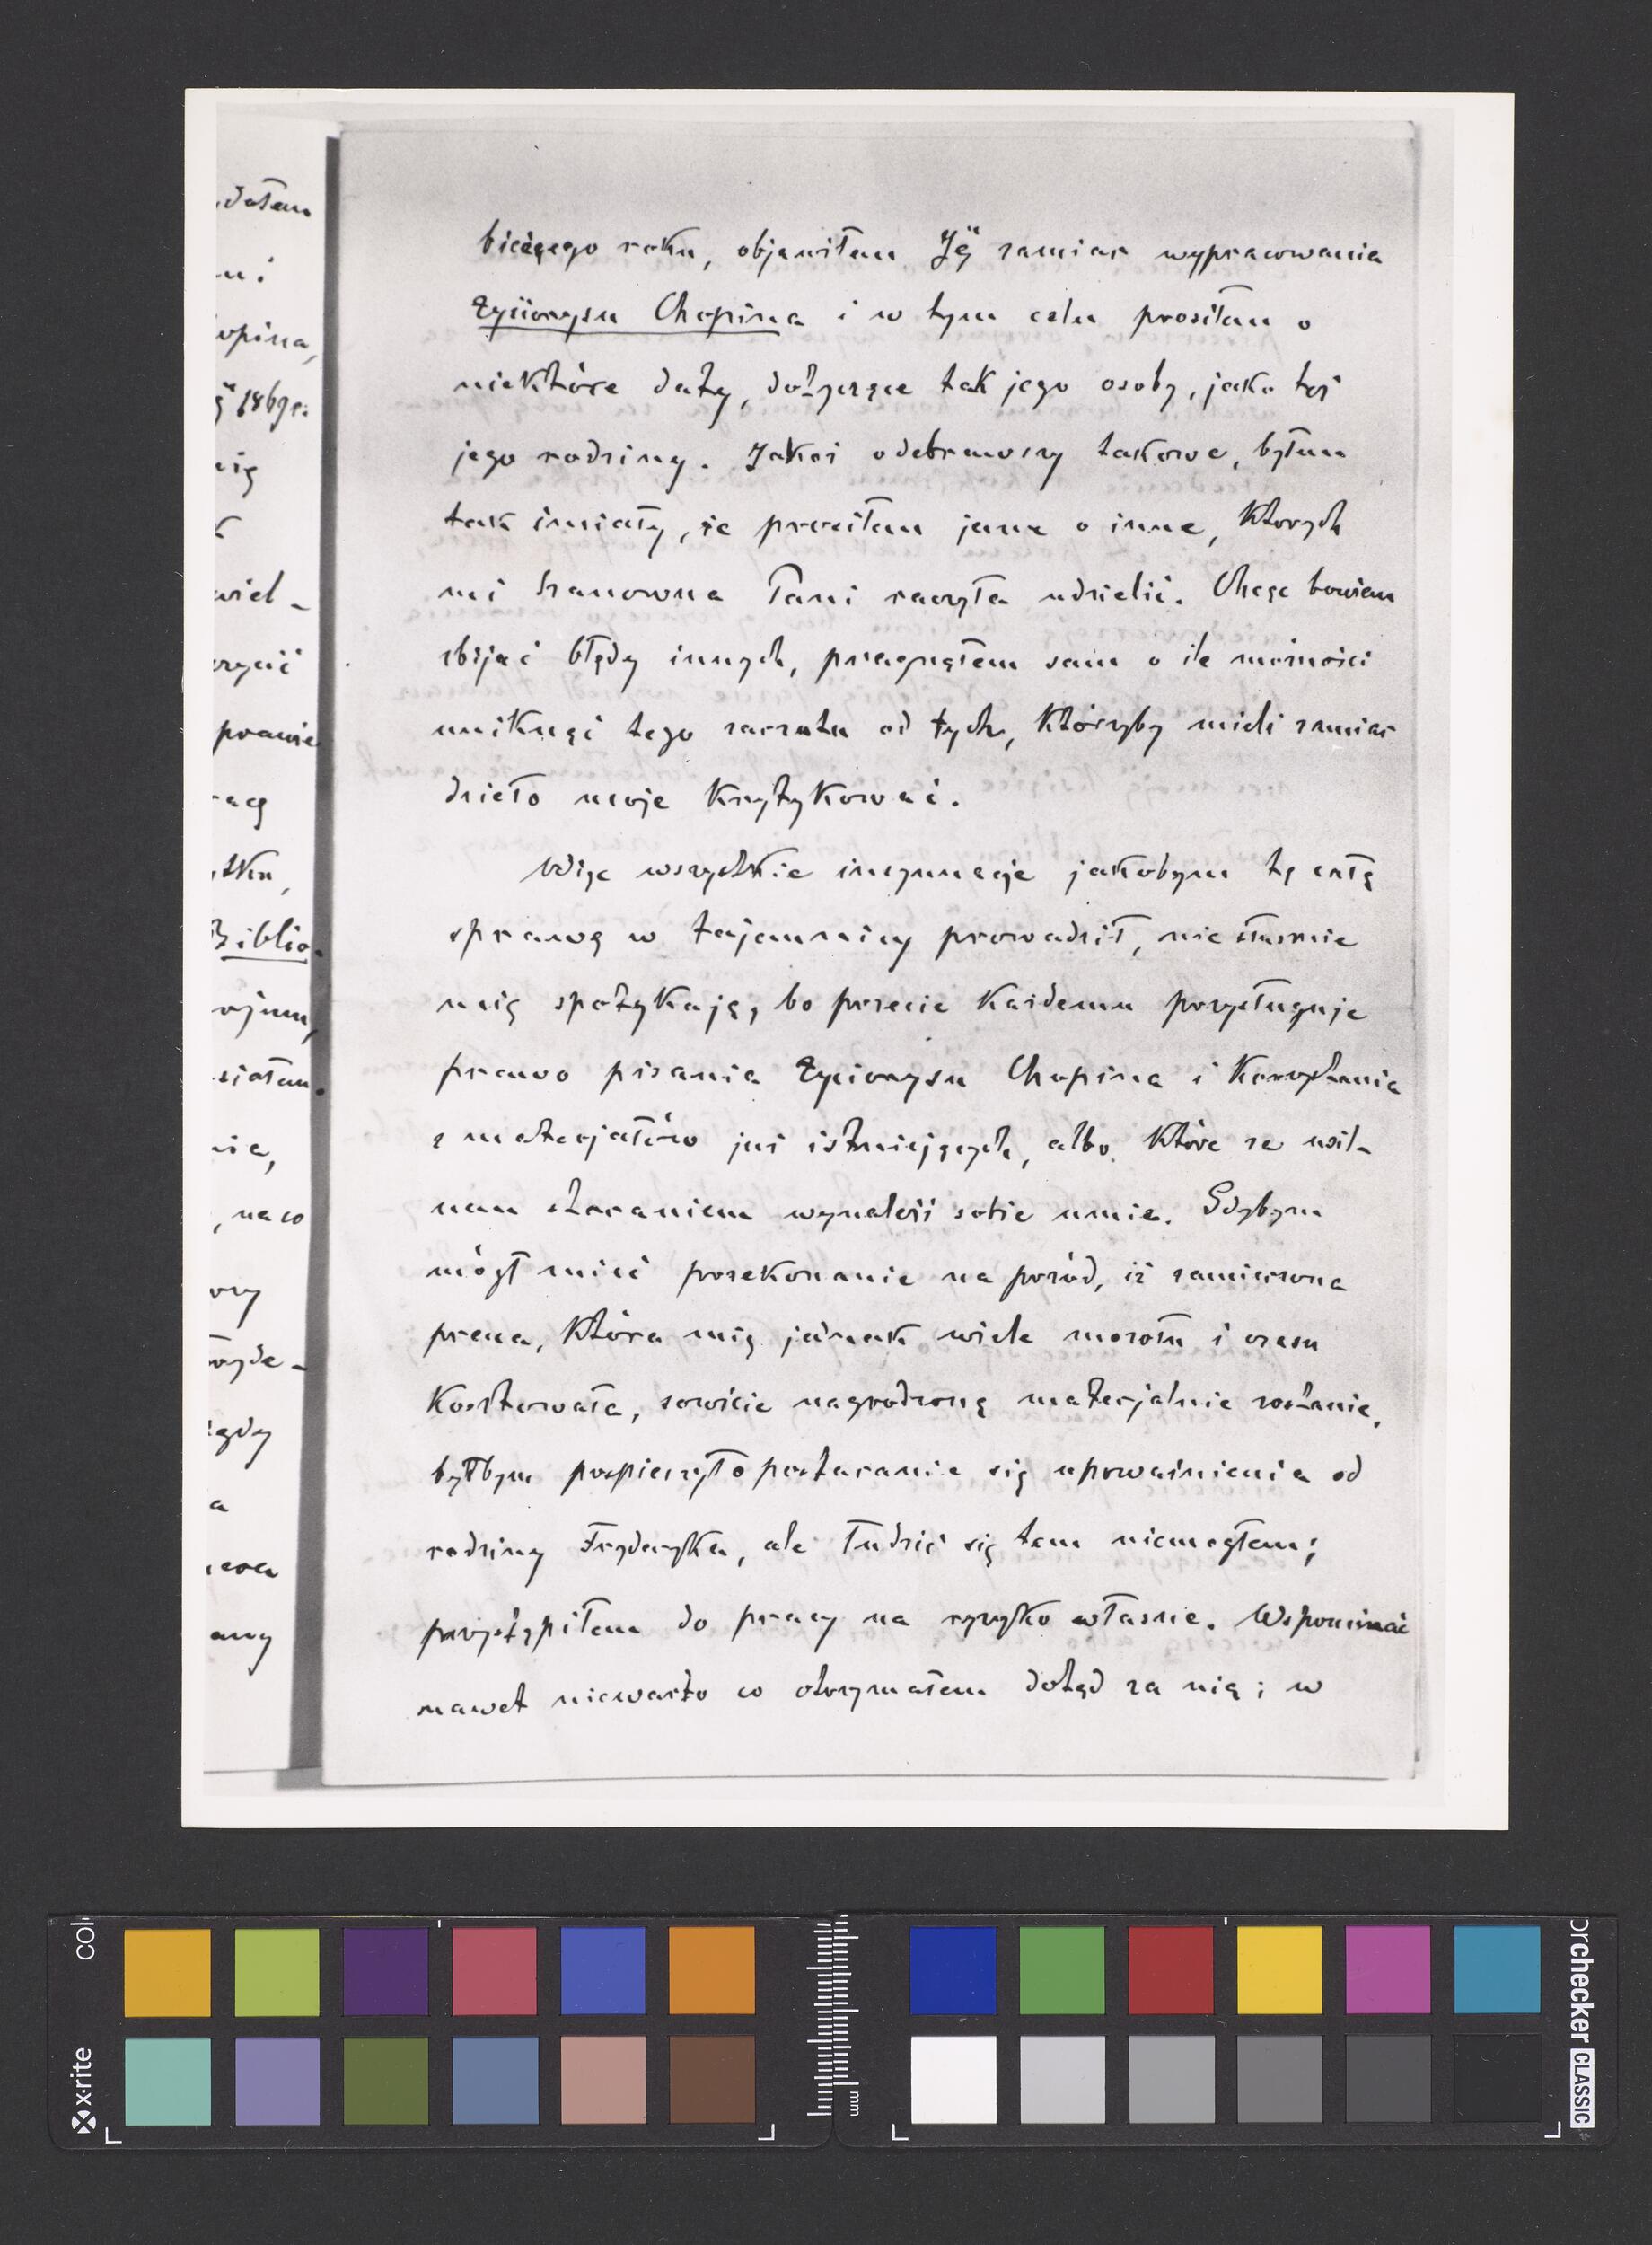 dałem
ni
opina,
1869 r.
nię
wiel-
prawie
acą
Biblio-
nie,
, na co
gdy
a
bieżącego roku, objawiłem Jéj zamiar wypracowania
życiorysu Chopina i w tym celu prosiłem o
niektóre daty, dotyczące tak jego osoby, jako też
jego rodziny. Jakoż odebrawszy takowe, byłem
tak śmiały, że prosiłem jeszcze o inne, których
mi Szanowna Pani raczyła udzielić. Chcąc bowiem
zbijać błędy innych, pragnąłem sam o ile możności
uniknąć tego zarzutu od tych, którzyby mieli zamiar
dzieło moje krytykować.
Więc wszystkie insynuacje jakobym tę całą
sprawę w tajemnicy prowadził, niesłusznie
mię spotykają, bo przecie każdemu przysługuje
prawo pisania życiorysu Chopina i korzystania
z materjałów już istniejących, albo które ze usil-
nem staraniem wynaleźć sobie umie. Gdybym
mógł mieć przekonanie na przód, iż zamierzona
praca, która mię jednak wiele mozołu i czasu
kosztowała, sowicie nagrodzoną materjalnie zostanie,
byłbym pospieszył o postaranie się upoważnienia od
rodziny Fryderyka, ale łudzić się tem niemogłem;
przystąpiłem do pracy na ryzyko własne. Wspominać
nawet niewarto co otrzymałem dotąd za nią; w
x-rite
colorchecker CLASSIC
mm